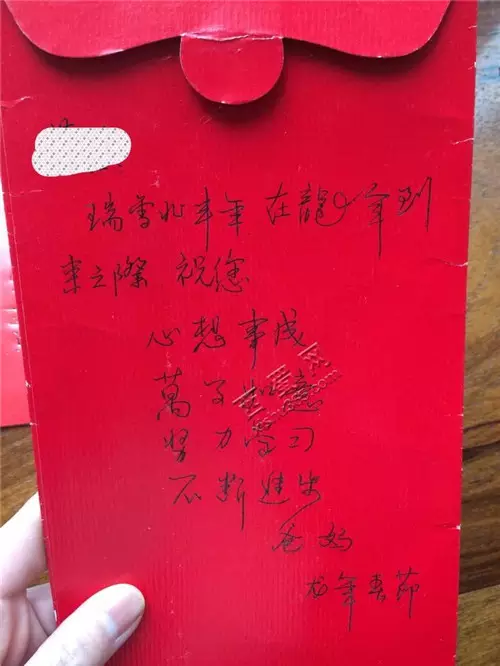 瑞雪兆丰年 在龍年到
来之際 祝您
心想事成
萬事如意
努力学习
不断进步
爸妈
龙年春節